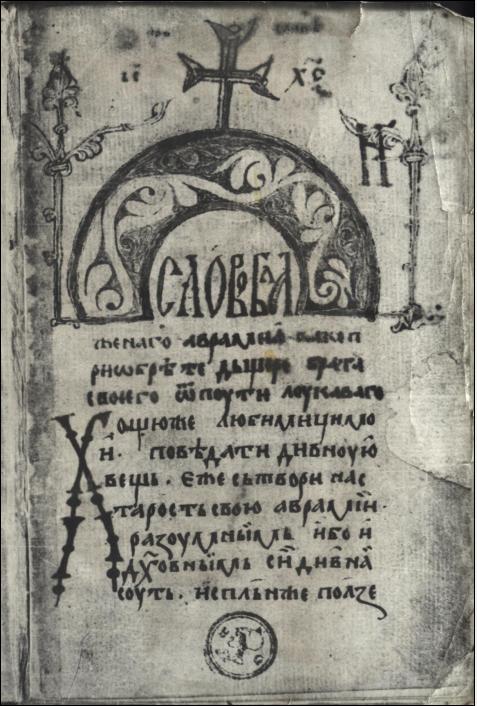 ІС ХС
СЛОВО БЛА
женаго авраамиа како п
риѡбрѣте дъщере брата
своего ѿ поути лоукаваго
Хощю же любимици мо
и. повѣдати дивноую
вещь. еже сътвори на с
тарость свою авраамїи.
разоумныимь ибо и
дх҃овныимь сїи дивна
соуть. исплънь же ползе